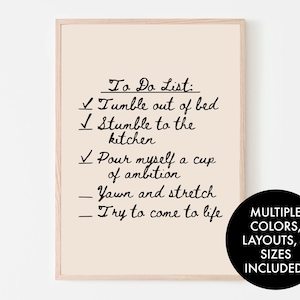 To Do List:
Tumble out of bed
Stumble to the
kitchen
Pour myself a cup
of ambition
Yawn and stretch
Try to come to life
MULTIPLE
COLORS,
LAYOUTS, &
SIZES
INCLUDED